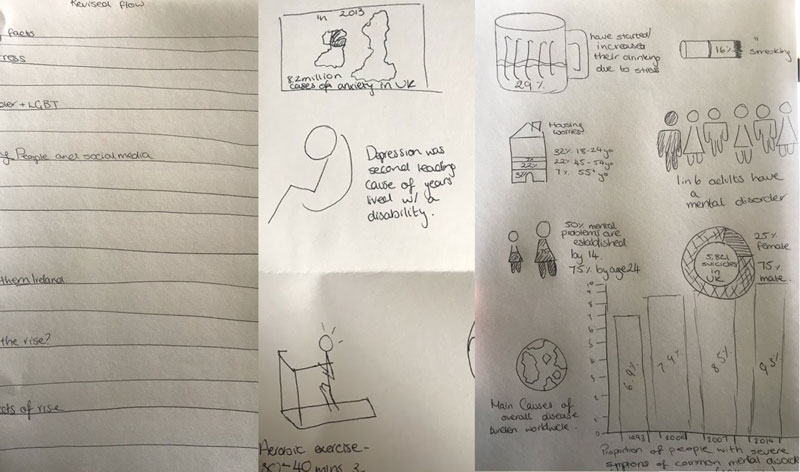 Revised flow
facts
ress
der + LGBT
g People and social media
thern Ireland
the rise?
cts of rise
in 2013
8.2 million
cases of anxiety in UK
Depression was
second leading
cause of years
lived w/ a
disability.
Aerobic exercise -
30-40 mins 3
29%
have started/
increased
their drinking
due to stress
16%
smoking
Housing
worries
32% 18-24yo
22% 45-54yo
7% 55+ yo
22%
32%
1 in 6 adults have
a
mental disorder
50% mental
problems are
established
by 14.
75% by age 24
5,821
suicides
in
UK
25%
female
75%
male
Main Causes of
overall disease
burden worldwide.
6.9%
7.9%
8.5%
9.3%
1993
2000
2007
2014
Proportion of people with severe
symptoms of common mental disorder